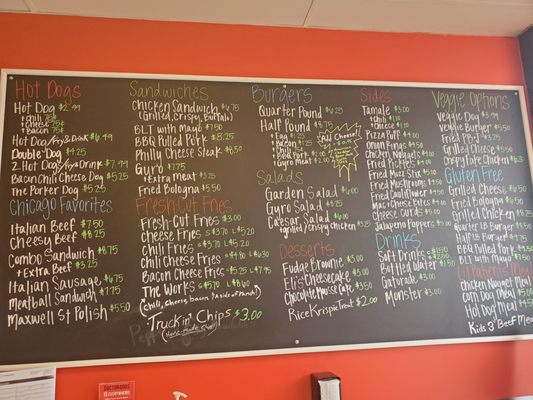 Hot Dogs
Hot Dog $2.99
+Chili 75¢
+Cheese 75¢
+Bacon 75¢
Hot Dog/Fry & Drink $6.49
Double Dog $4.25
2-Hot Dogs/Fry & Drink $7.99
Bacon Chili Cheese Dog $5.25
The Porter Dog $5.25
Chicago Favorites
Italian Beef $7.50
Cheesy Beef $8.25
Combo Sandwich $8.75
+Extra Beef $3.25
Italian Sausage $6.75
Meatball Sandwich $7.75
Maxwell St Polish $5.50
Sandwiches
Chicken Sandwich $6.75
(Grilled, Crispy, Buffalo)
BLT with Mayo $7.50
BBQ Pulled Pork $8.25
Philly Cheese Steak $8.50
Gyro $7.75
+Extra Meat $3.25
Fried Bologna $5.50
Fresh-Cut Fries
Fresh-Cut Fries $3.00
Cheese Fries S $3.70 L $5.20
Chili Fries S $3.70 L $5.20
Chili Cheese Fries S $4.80 L $6.30
Bacon Cheese Fries S $5.25 L $7.95
The Works S $5.70 L $8.70
(Chili, Cheese, bacon & side of Ranch)
Truckin' Chips $3.00
(Home Made Chips)
Burgers
Quarter Pound $6.25
Half Pound $8.75
+Egg
+Bacon
+Chili
+Pulled Pork
+Gyro
Add Cheese!
Salads
Garden Salad $6.00
Gyro Salad $8.25
Caesar Salad $6.00
+Grilled/Crispy Chicken $3.25
Desserts
Fudge Brownie $3.00
Eli's Cheesecake $5.00
Chocolate Mousse Cake $3.50
Rice Krispie Treat $2.00
Sides
Tamale $3.00
+Chili $1.10
+Cheese $1.10
Pizza Puff $4.00
Onion Rings $4.50
Chicken Nuggets
Fried Pickles
Fried Mushrooms
Fried Cauliflower
Mac & Cheese Bites
Cheese Curds $5.00
Jalapeno Poppers $5.00
Drinks
Soft Drinks
Bottled Water
Gatorade $3.00
Monster $3.00
Veggie Options
Veggie Dog $3.99
Veggie Burger $5.50
Fried PB+J
Grilled Cheese $5.50
Crispy Fake Chicken
Gluten Free
Grilled Cheese
Fried Bologna $6.50
Grilled Chicken
Quarter LB Burger
Half LB Burger
BBQ Pulled Pork
BLT with Mayo
Lil Patients Meal
Chicken Nugget Meal
Corn Dog Meal
Hot Dog Meal
Kids 3" Beef Meal